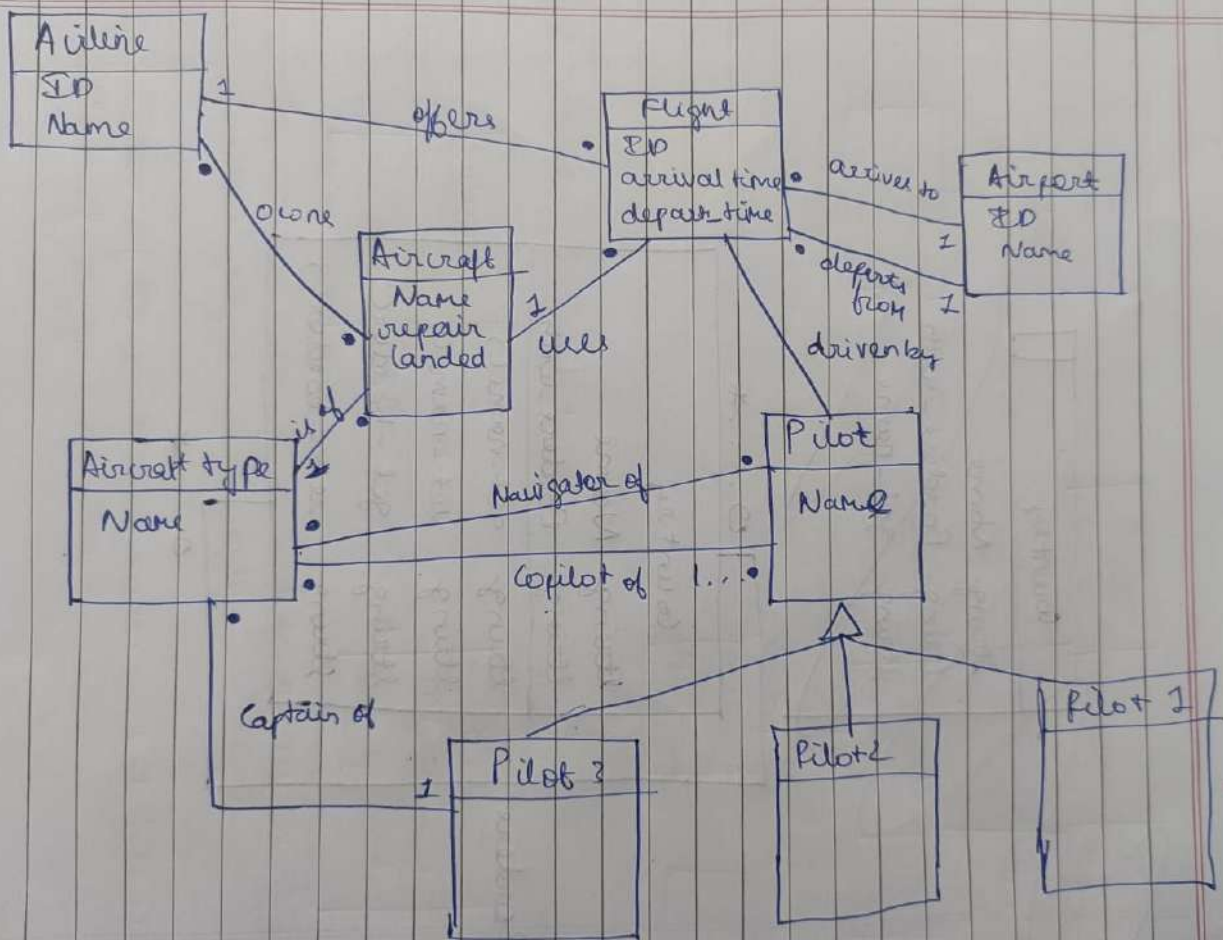 Airline
ID
Name
1
offers
Flight
ID
arrival time
depart_time
arrives to
1
departs
from
1
Airport
ID
Name
owns
Aircraft
Name
repair
landed
1
uses
driven by
is of
1
Aircraft type
Name
Navigator of
Copilot of
1..
Pilot
Name
Captain of
1
Pilot 3
Pilot 2
Pilot 1